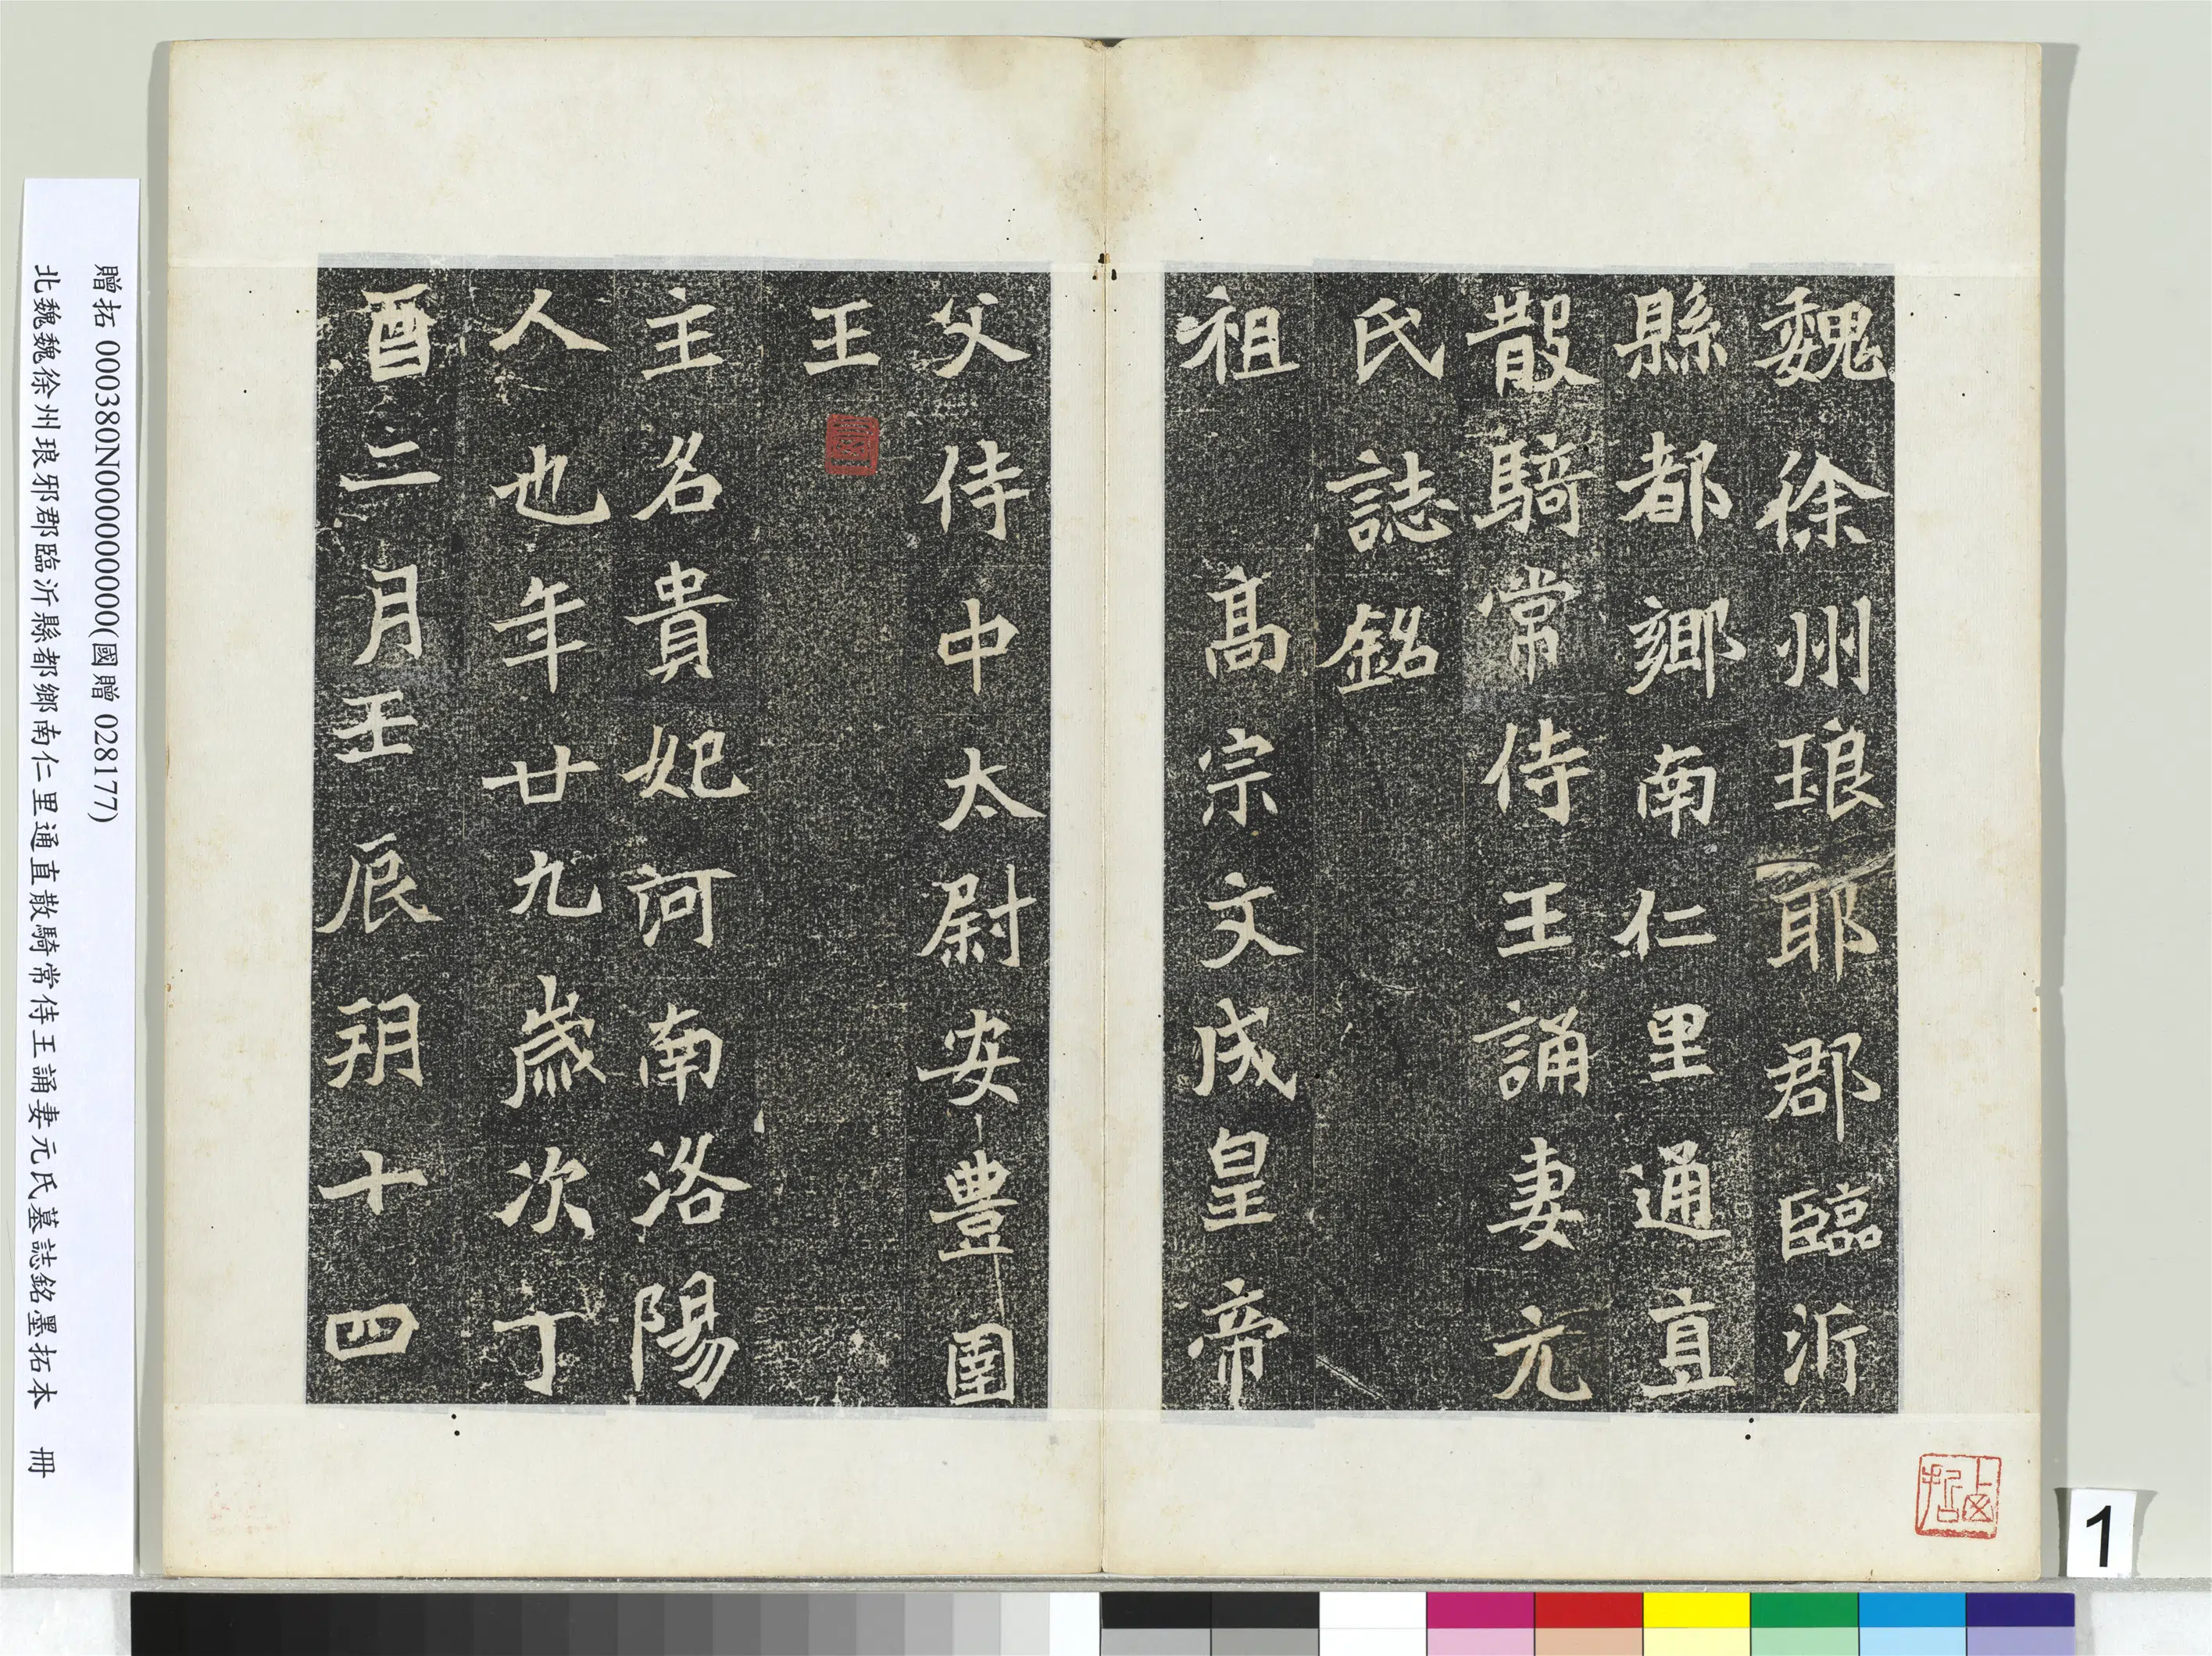 魏徐州琅耶郡臨沂
縣都鄉南仁里通直
散騎常侍王誦妻元
氏誌銘
祖 高宗文成皇帝
父侍中太尉安豐圉
王
主名貴妃河南洛陽
人也年廿九歲次丁
酉二月壬辰朔十四
贈拓 000380N000000000(國贈 028177)
北魏魏徐州琅邪郡臨沂縣都鄉南仁里通直散騎常侍王誦妻元氏墓誌銘墨拓本 冊
1